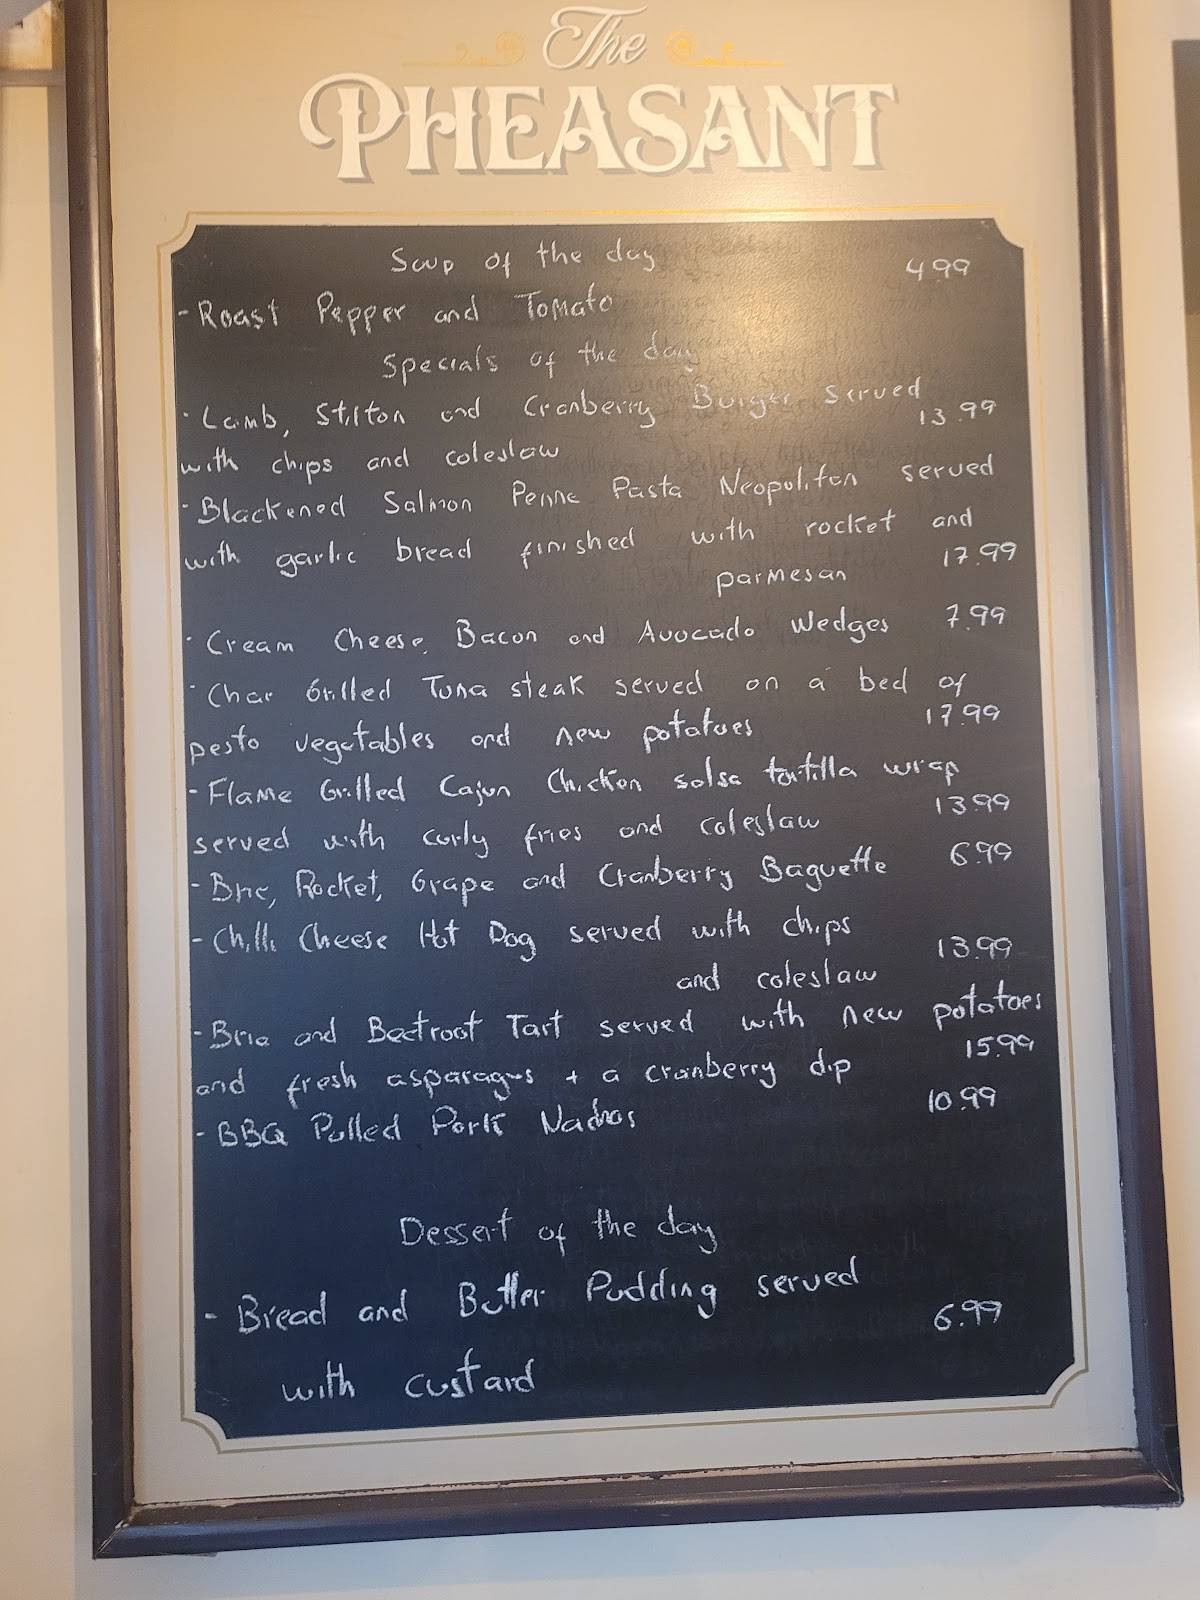 The
PHEASANT
Soup of the day
4.99
- Roast Pepper and Tomato
Specials of the day
· Lamb, Stilton and Cranberry Burger served
13.99
with chips and coleslaw
· Blackened Salmon Penne Pasta Neopoliton served
with garlic bread finished with rocket and
parmesan 17.99
· Cream Cheese, Bacon and Avocado Wedges 7.99
· Char Grilled Tuna steak served on a bed of
pesto vegetables and new potatoes 17.99
- Flame Grilled Cajun Chicken salsa tortilla wrap
served with curly fries and coleslaw 13.99
- Brie, Rocket, Grape and Cranberry Baguette 6.99
- Chilli Cheese Hot Dog served with chips
and coleslaw 13.99
- Brie and Beetroot Tart served with new potatoes
and fresh asparagus + a cranberry dip 15.99
- BBQ Pulled Pork Nachos 10.99
Dessert of the day
- Bread and Butter Pudding served
6.99
with custard